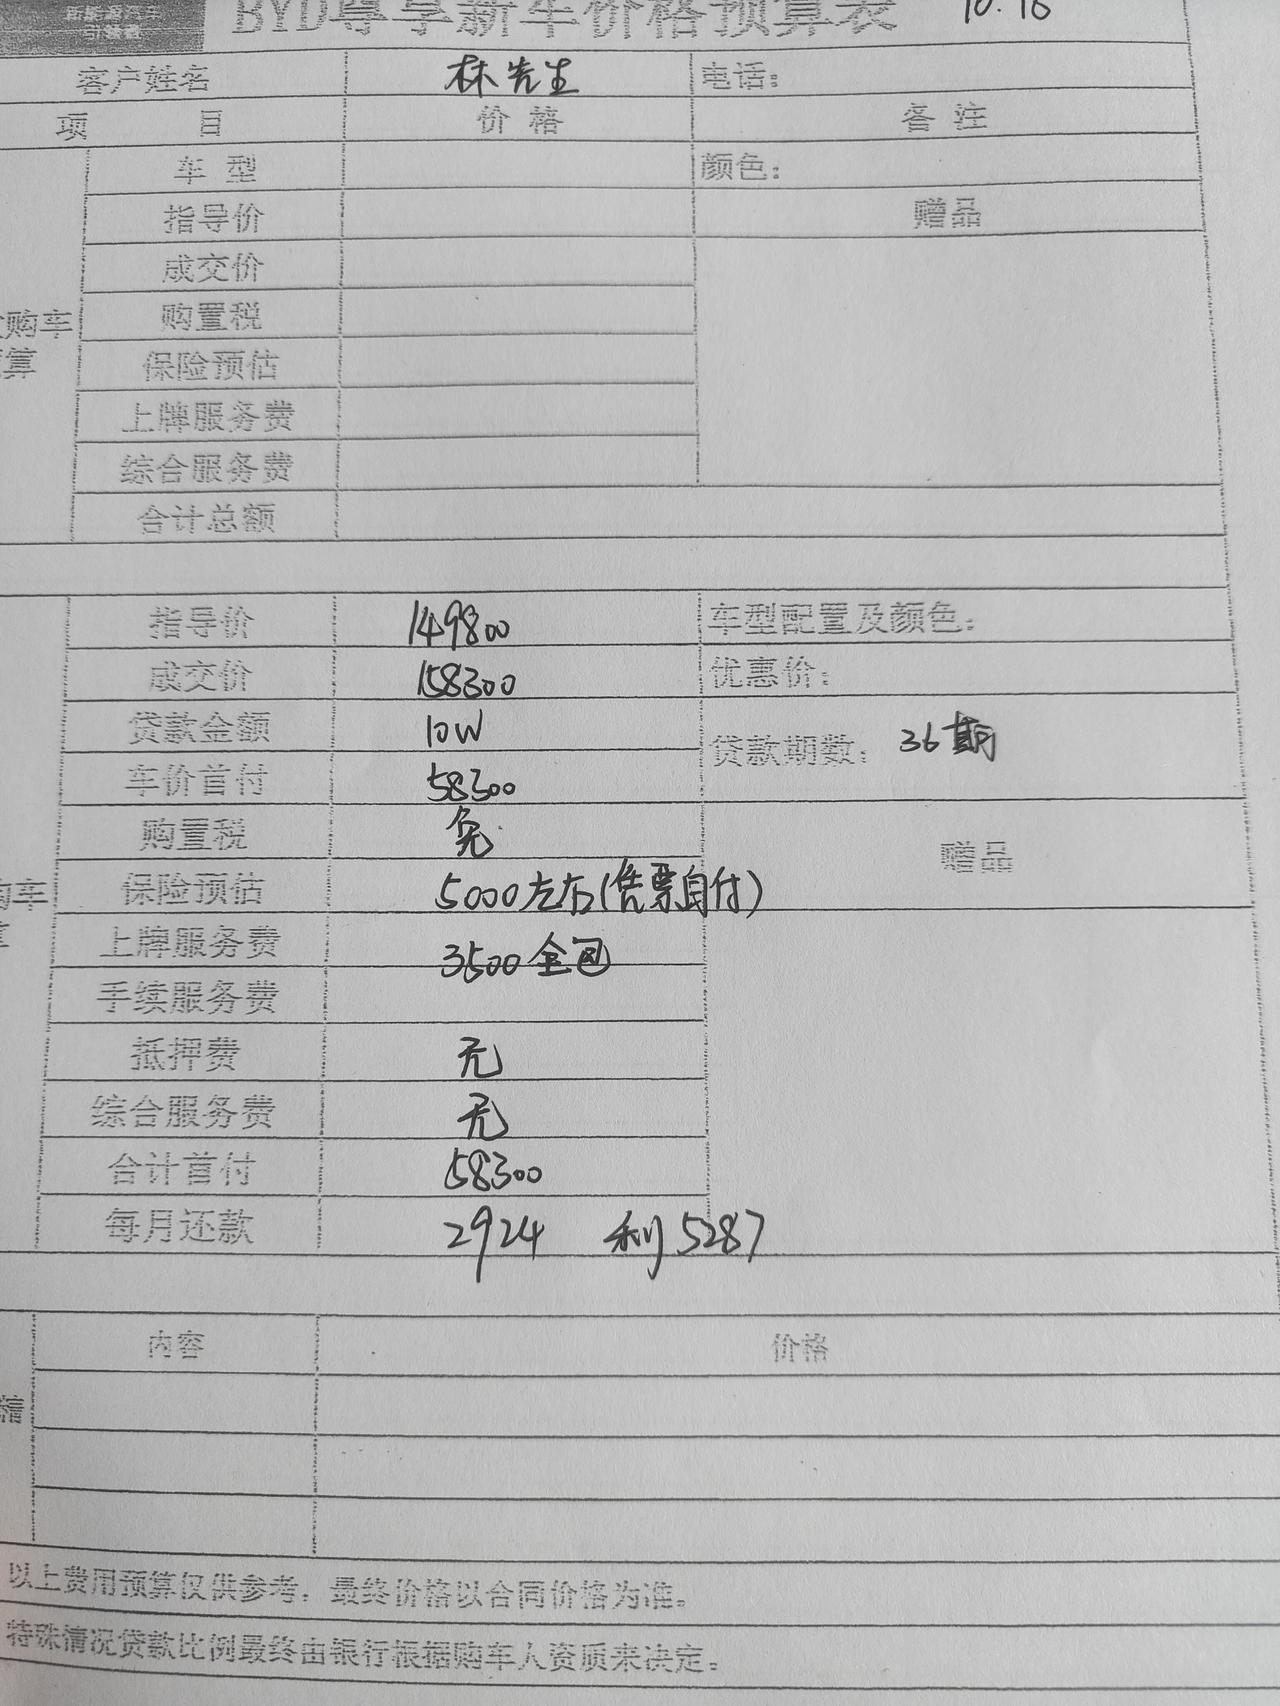 新能源汽车
引领者
BYD尊享新车价格预算表 10.16
客户姓名 林先生 电话：
项 目 价 格 备 注
车 型 颜色：
指导价 赠品
成交价
购置税
购车
算
保险预估
上牌服务费
综合服务费
合计总额
指导价 149800 车型配置及颜色：
成交价 158300 优惠价：
贷款金额 10W
贷款期数：36期
车价首付 58300
购置税 免
赠品
购车
保险预估 5000左右(凭票自付)
上牌服务费 3500全包
手续服务费
抵押费 无
综合服务费 无
合计首付 58300
每月还款 2924 利5287
内容 价格
以上费用预算仅供参考，最终价格以合同价格为准。
特殊情况贷款比例最终由银行根据购车人资质来决定。